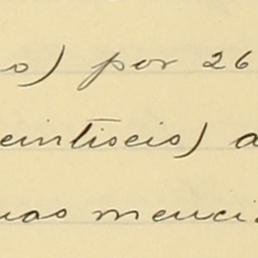 o) por 26
eintiseis) a
uas menci